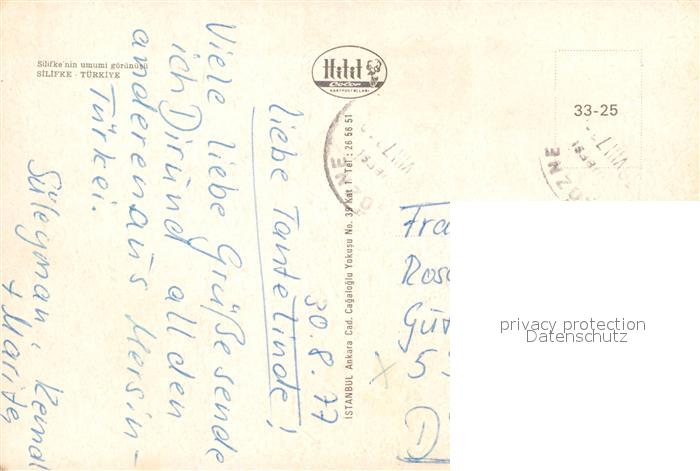 Silifke'nin umumi görünüşü
SİLİFKE - TÜRKİYE
Hitit
Color
KARTPOSTALLARI
İSTANBUL Ankara Cad. Cağaloğlu Yokuşu No. 39 Kat 1 Tel: 26 56 51
33-25
30.8.77
liebe Tante Linde!
Viele liebe Grüße sende
ich Dir und all den
anderen aus Mersin -
Türkei.
Süleyman, Kemal
+ Marita
Fra
Ros
Gü
5
D
GÖZNE
privacy protection
Datenschutz